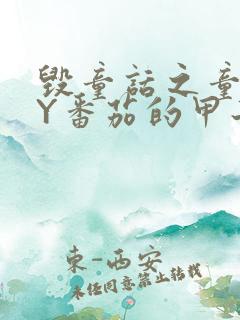 毁童话之童
Y番茄的甲
东-西安
未经同意禁止转载